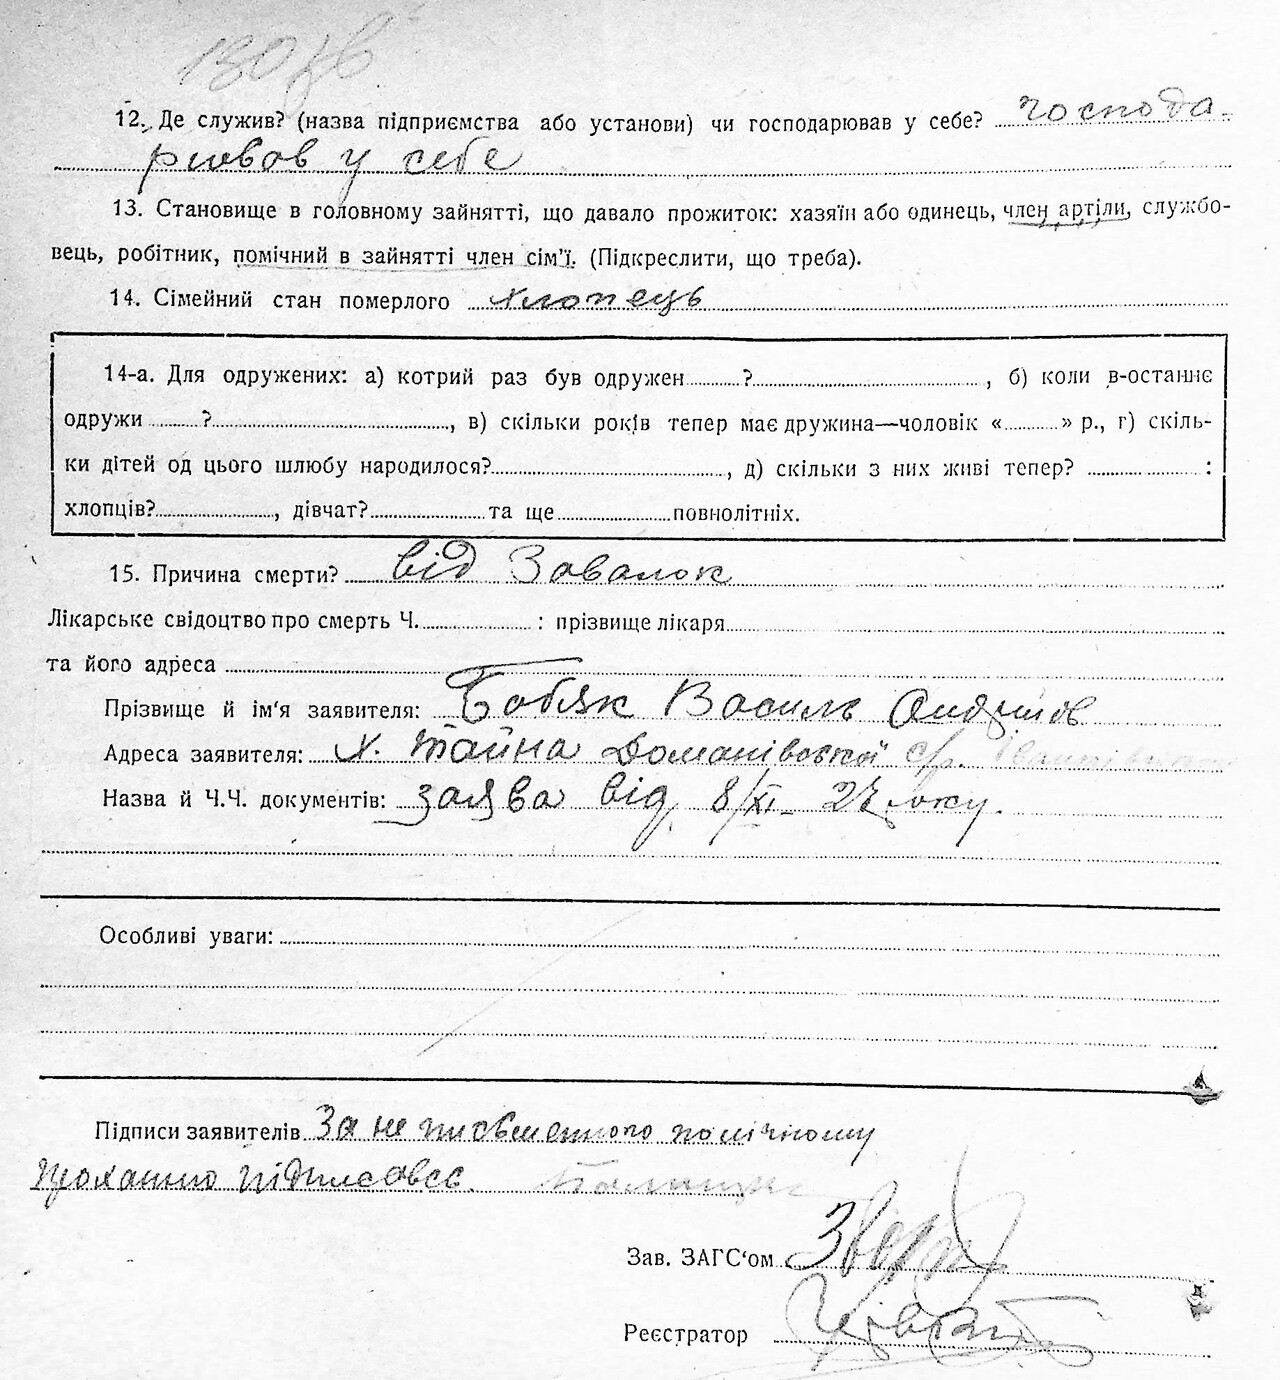 12. Де служив? (назва підприємства або установи) чи господарював у себе? господа-
рював у себе
13. Становище в головному зайнятті, що давало прожиток: хазяїн або одинець, член артіли, службо-
вець, робітник, помічний в зайнятті член сім'ї. (Підкреслити, що треба).
14. Сімейний стан померлого хлопець
14-а. Для одружених: а) котрий раз був одружен ? , б) коли в-останнє
одружи ? , в) скільки років тепер має дружина—чоловік « » р., г) скіль-
ки дітей од цього шлюбу народилося? , д) скільки з них живі тепер? :
хлопців? , дівчат? та ще повнолітніх.
15. Причина смерти? від Завалок
Лікарське свідоцтво про смерть Ч. : прізвище лікаря
та його адреса
Прізвище й ім'я заявителя: Бобяк Василь
Адреса заявителя: х. Тайна Доманівської с/р.
Назва й Ч.Ч. документів: заява від 8/XI- 27 року.
Особливі уваги:
Підписи заявителів За не письменного
проханню підписавсь
Зав. ЗАГС'ом
Реєстратор